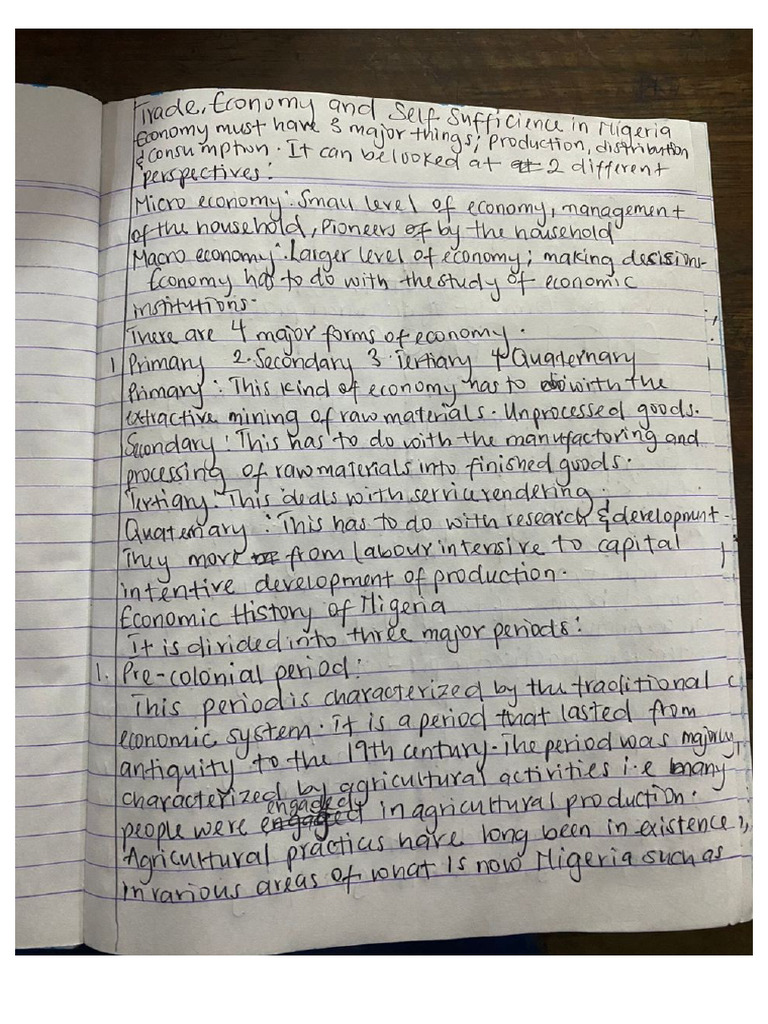 Trade, Economy and Self Sufficience in Nigeria
Economy must have 3 major things; production, distribution
& consumption. It can be looked at 2 different
perspectives:
Micro economy: Small level of economy, management
of the household, Pioneers of by the household
Macro economy: Larger level of economy; making decisions.
Economy has to do with the study of economic
institutions.
There are 4 major forms of economy.
1 Primary 2. Secondary 3. Tertiary 4 Quaternary
Primary: This kind of economy has to do with the
extractive mining of raw materials. Unprocessed goods.
Secondary: This has to do with the manufactoring and
processing of raw materials into finished goods.
Tertiary: This deals with service rendering.
Quaternary: This has to do with research & development.
They more from labour intensive to capital
intentive development of production.
Economic History of Nigeria
It is divided into three major periods:
1. Pre-colonial period:
This period is characterized by the traditional
economic system. It is a period that lasted from
antiquity to the 19th century. The period was majorly
characterized by agricultural activities i.e many
people were engaged in agricultural production.
Agricultural practices have long been in existence
in various areas of what is now Nigeria such as